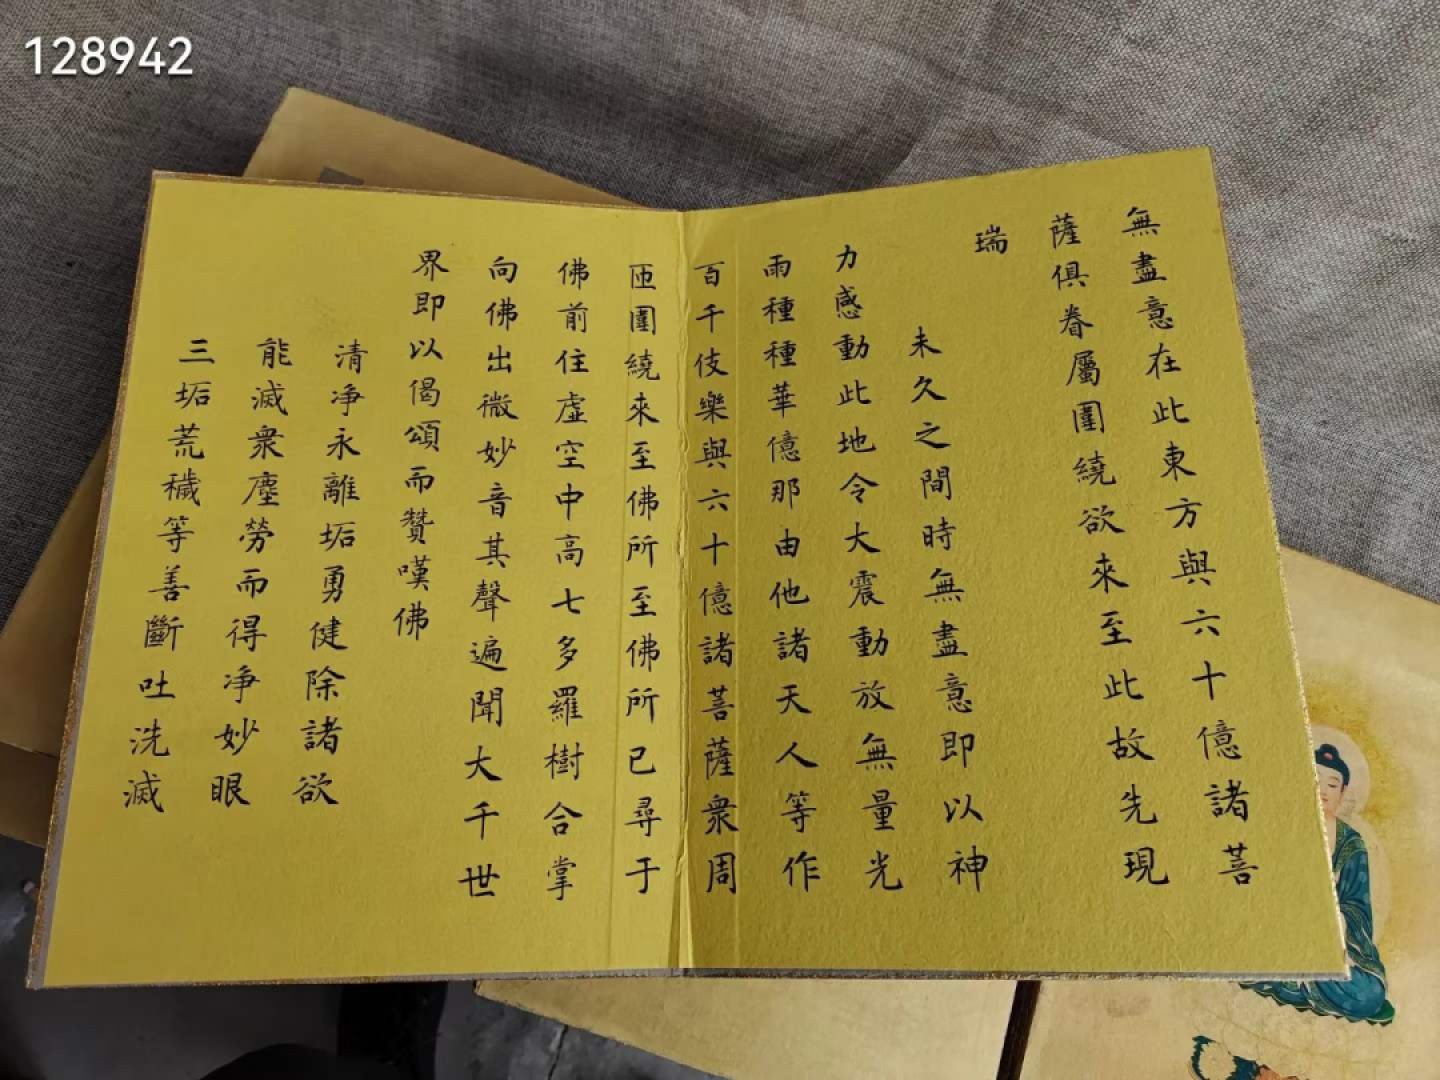 128942
無盡意在此東方與六十億諸菩
薩俱眷屬圍繞欲來至此故先現
瑞
未久之間時無盡意即以神
力感動此地令大震動放無量光
雨種種華億那由他諸天人等作
百千伎樂與六十億諸菩薩衆周
匝圍繞來至佛所至佛所已尋于
佛前住虛空中高七多羅樹合掌
向佛出微妙音其聲遍聞大千世
界即以偈頌而贊嘆佛
清净永離垢勇健除諸欲
能滅衆塵勞而得净妙眼
三垢荒穢等善斷吐洗滅